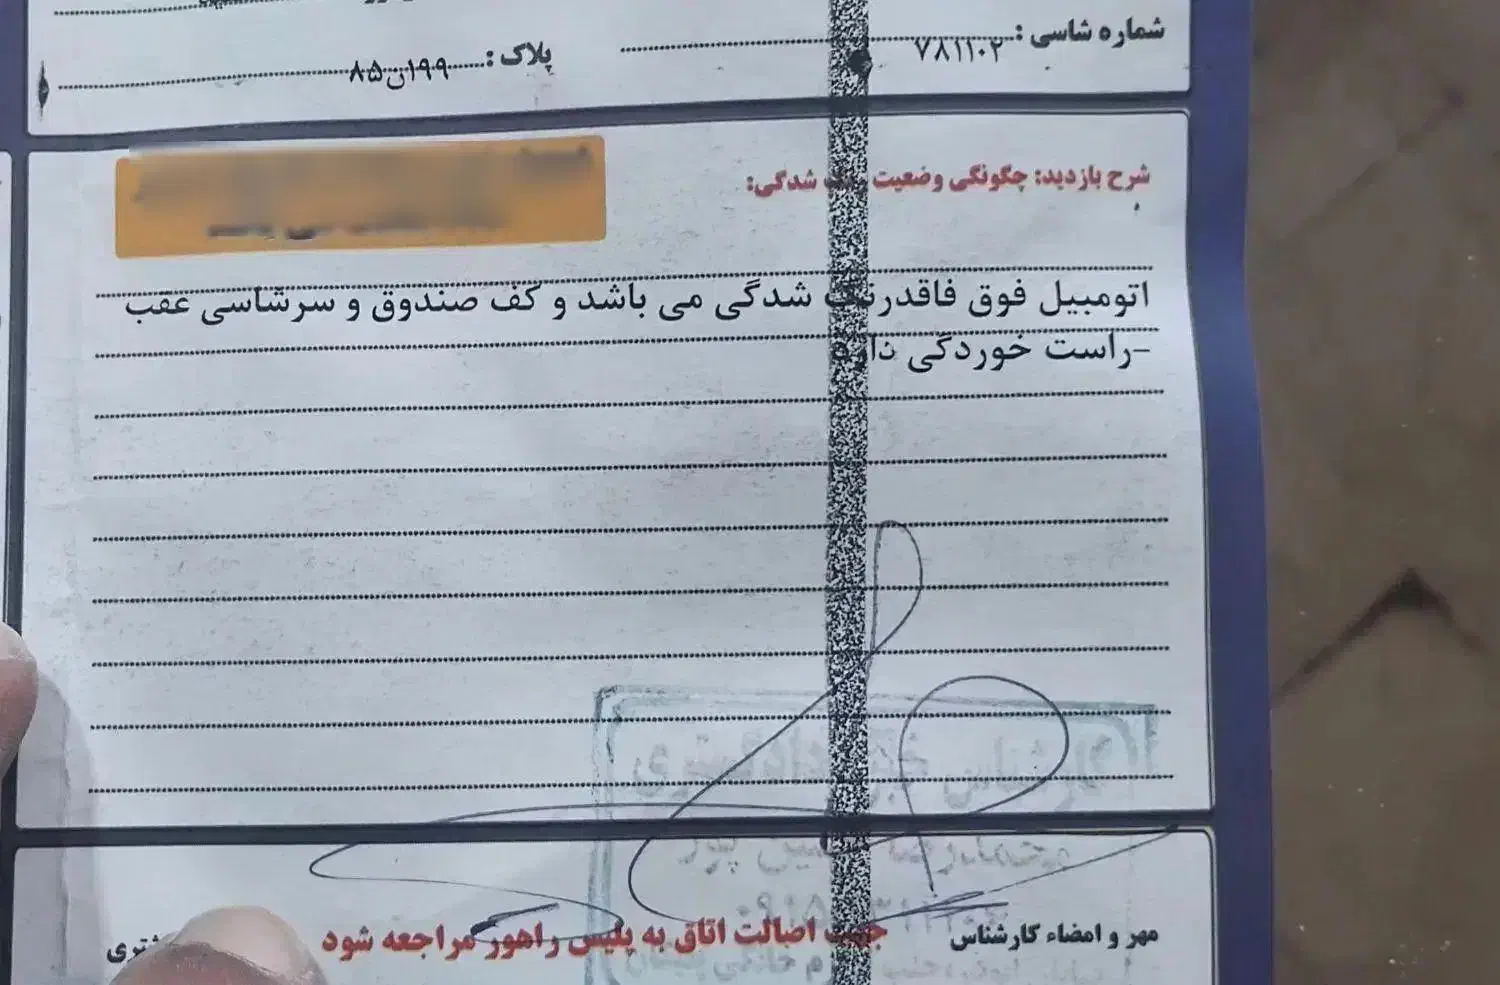 شماره شاسی: ۷۸۱۱۰۲
پلاک: ۱۹۹ن۸۵
شرح بازدید: چگونگی وضعیت شدگی:
اتومبیل فوق فاقدرنگ شدگی می باشد و کف صندوق و سرشاسی عقب
-راست خوردگی دارد
مهر و امضاء کارشناس
جهت اصالت اتاق به پلیس راهور مراجعه شود